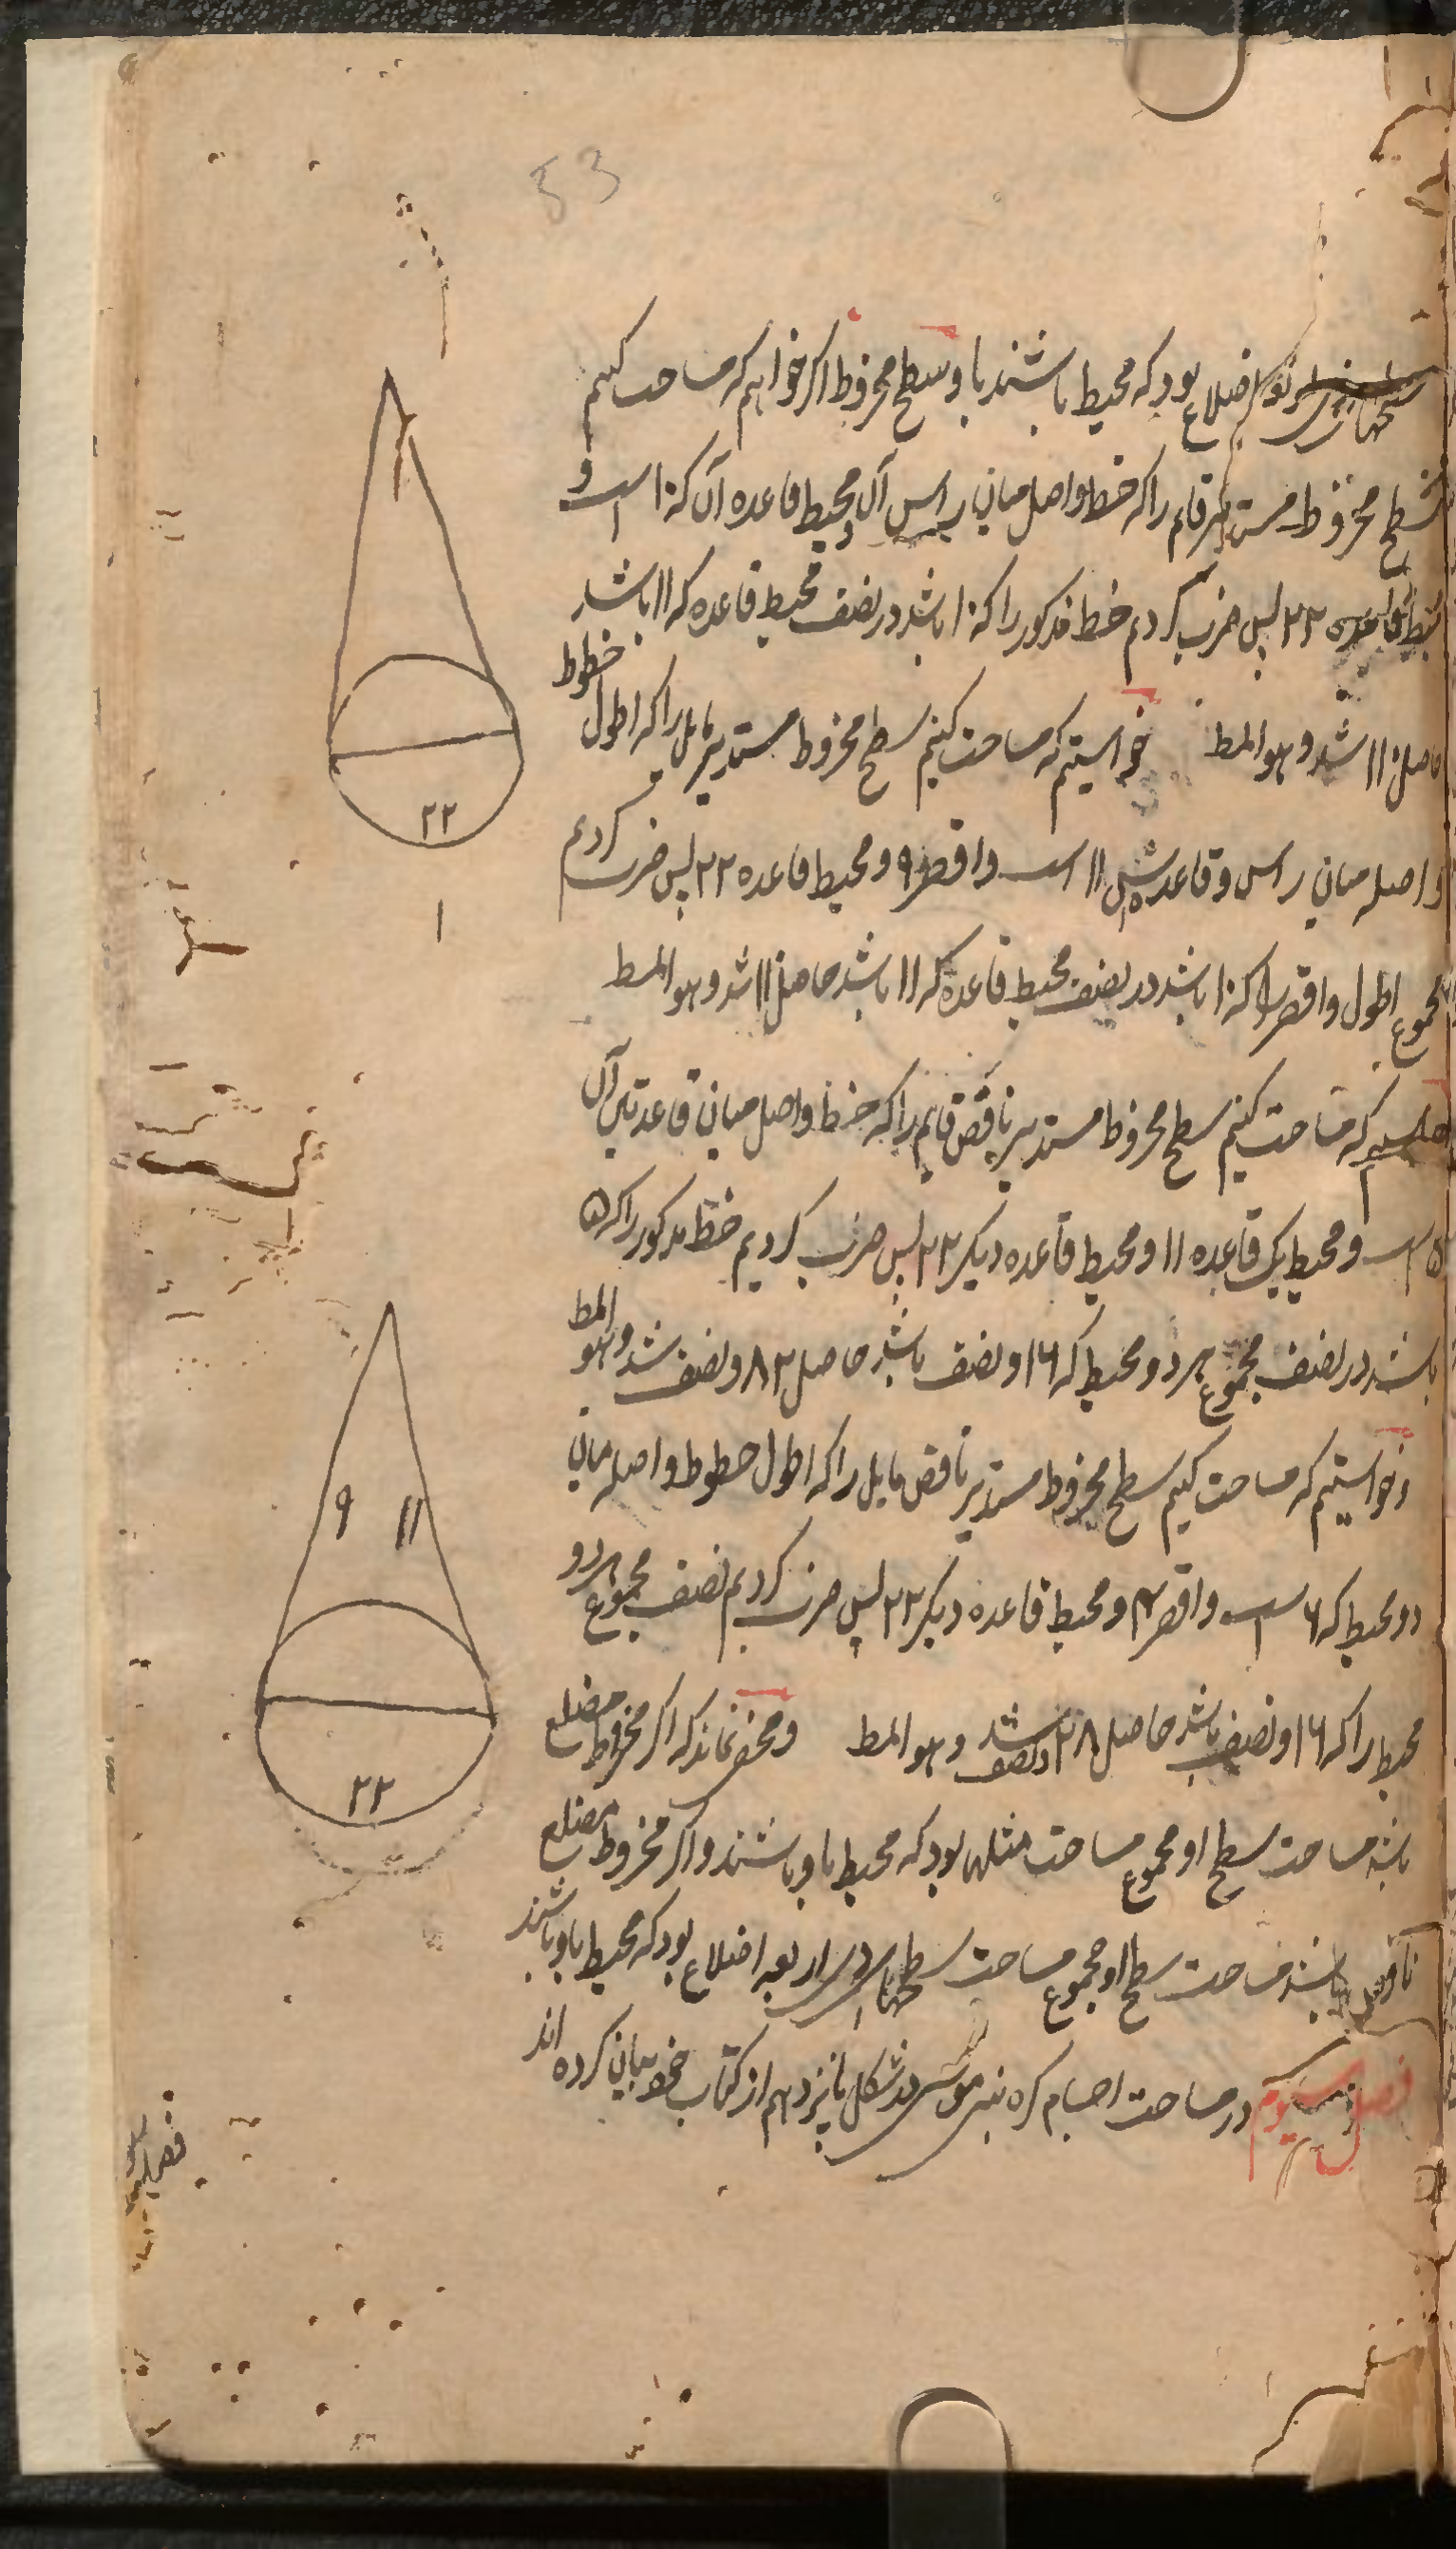 53
اضلاع بود که محیط باشند باو سطح مخروط اکر خواهیم که مساحت کنیم
سطح مخروط مستدیر قایم را که خط واصل میان راس آن و محیط قاعده آن که ۱۰ است و
محیط قاعده ۲۲ پس ضرب کردیم خط مذکور را که ۱۰ باشد در نصف محیط قاعده که ۱۱ باشد
حاصل ۱۱۰ شد و هو المط خواستیم که مساحت کنیم سطح مخروط مستدیر مایل را که اطول خطوط
واصله میان راس و قاعده اش ۱۱ است و اقصر ۹ و محیط قاعده ۲۲ پس ضرب کردیم
مجموع اطول و اقصر را که ۱۰ باشد در نصف محیط قاعده که ۱۱ باشد حاصل ۱۱۰ شد و هو المط
که مساحت کنیم سطح مخروط مستدیر ناقص قایم را که خط واصل میان قاعدتین آن
۵ است و محیط یک قاعده ۱۱ و محیط قاعده دیکر ۲۲ پس ضرب کردیم خط مذکور را که ۵
باشد در نصف مجموع هر دو محیط که ۱۶ و نصف باشد حاصل ۸۲ و نصف شد و هو المط
و خواستیم که مساحت کنیم سطح مخروط مستدیر ناقص مایل را که اطول خطوط واصله میان
دو محیط که ۶ است و اقصر ۴ و محیط قاعده دیکر ۲۲ پس ضرب کردیم نصف مجموع هر دو
محیط را که ۱۶ و نصف باشد حاصل ۸۲ و نصف شد و هو المط و مخفی نماند که اکر مخروط مضلع
باشد مساحت سطح او مجموع مساحت مثلها بود که محیط باو باشند و اکر مخروط مضلع
ناقص باشد مساحت سطح او مجموع مساحت سطحهای اربعه اضلاع بود که محیط باو باشند
فصل سیوم در مساحت اجسام کره بنی موسی در شکل پانزدهم از کتاب خود بیان کرده اند
۲۲
۱
۹ ۱۱
۲۲